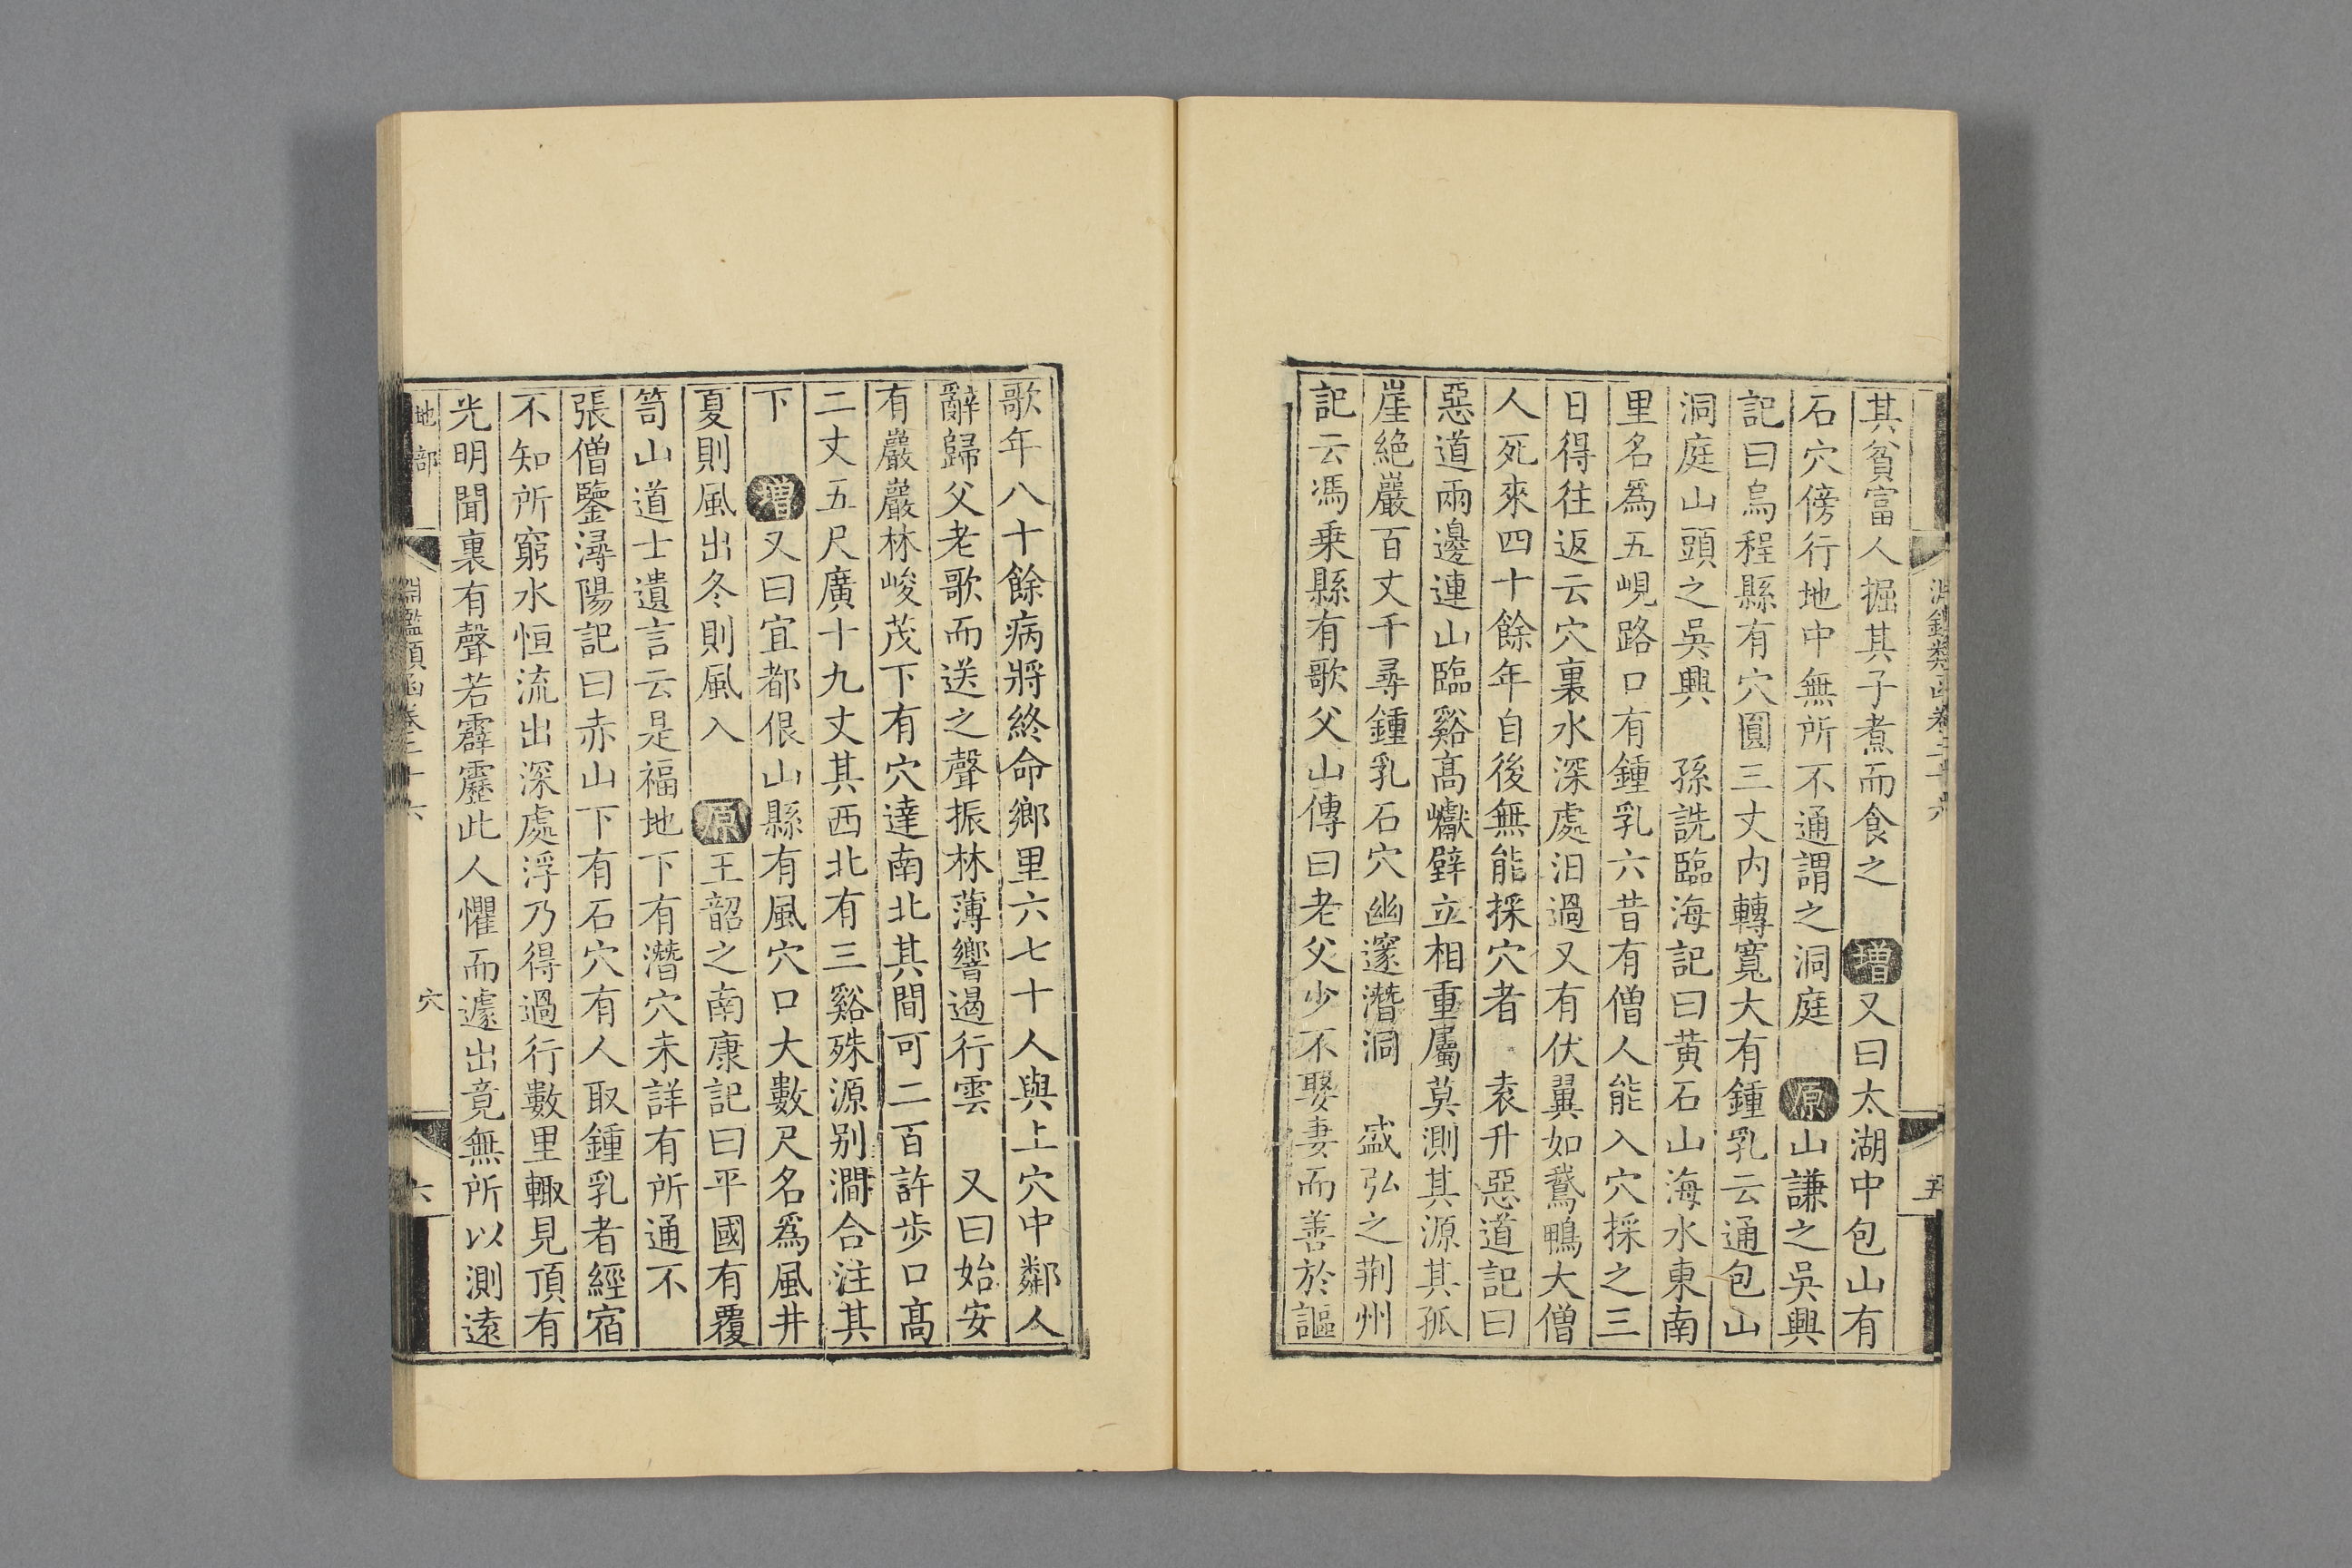 淵鑑類函卷二十六
五
其貧富人掘其子煮而食之 增又曰太湖中包山有
石穴傍行地中無所不通謂之洞庭 原山謙之吳興
記曰烏程縣有穴圓三丈内轉寬大有鍾乳云通包山
洞庭山頭之吳興 孫詵臨海記曰黄石山海水東南
里名爲五峴路口有鍾乳六昔有僧人能入穴採之三
日得往返云穴裏水深處汨過又有伏翼如鵞鴨大僧
人死來四十餘年自後無能採穴者 袁升惡道記曰
惡道兩邊連山臨谿髙巘壁立相重屬莫測其源其孤
崖絶巖百丈千尋鍾乳石穴幽邃潛洞 盛弘之荆州
記云馮乗縣有歌父山傳曰老父少不娶妻而善於謳
歌年八十餘病將終命鄉里六七十人與上穴中鄰人
辭歸父老歌而送之聲振林薄響遏行雲 又曰始安
有巖巖林峻茂下有穴達南北其間可二百許歩口髙
二丈五尺廣十九丈其西北有三谿殊源别澗合注其
下 增又曰宜都佷山縣有風穴口大數尺名爲風井
夏則風出冬則風入 原王韶之南康記曰平國有覆
笥山道士遺言云是福地下有潛穴未詳有所通不
張僧鑒潯陽記曰赤山下有石穴有人取鍾乳者經宿
不知所窮水恒流出深處浮乃得過行數里輙見頂有
光明聞裏有聲若霹靂此人懼而遽出竟無所以測遠
地部
淵鑑類函卷二十六
穴
六